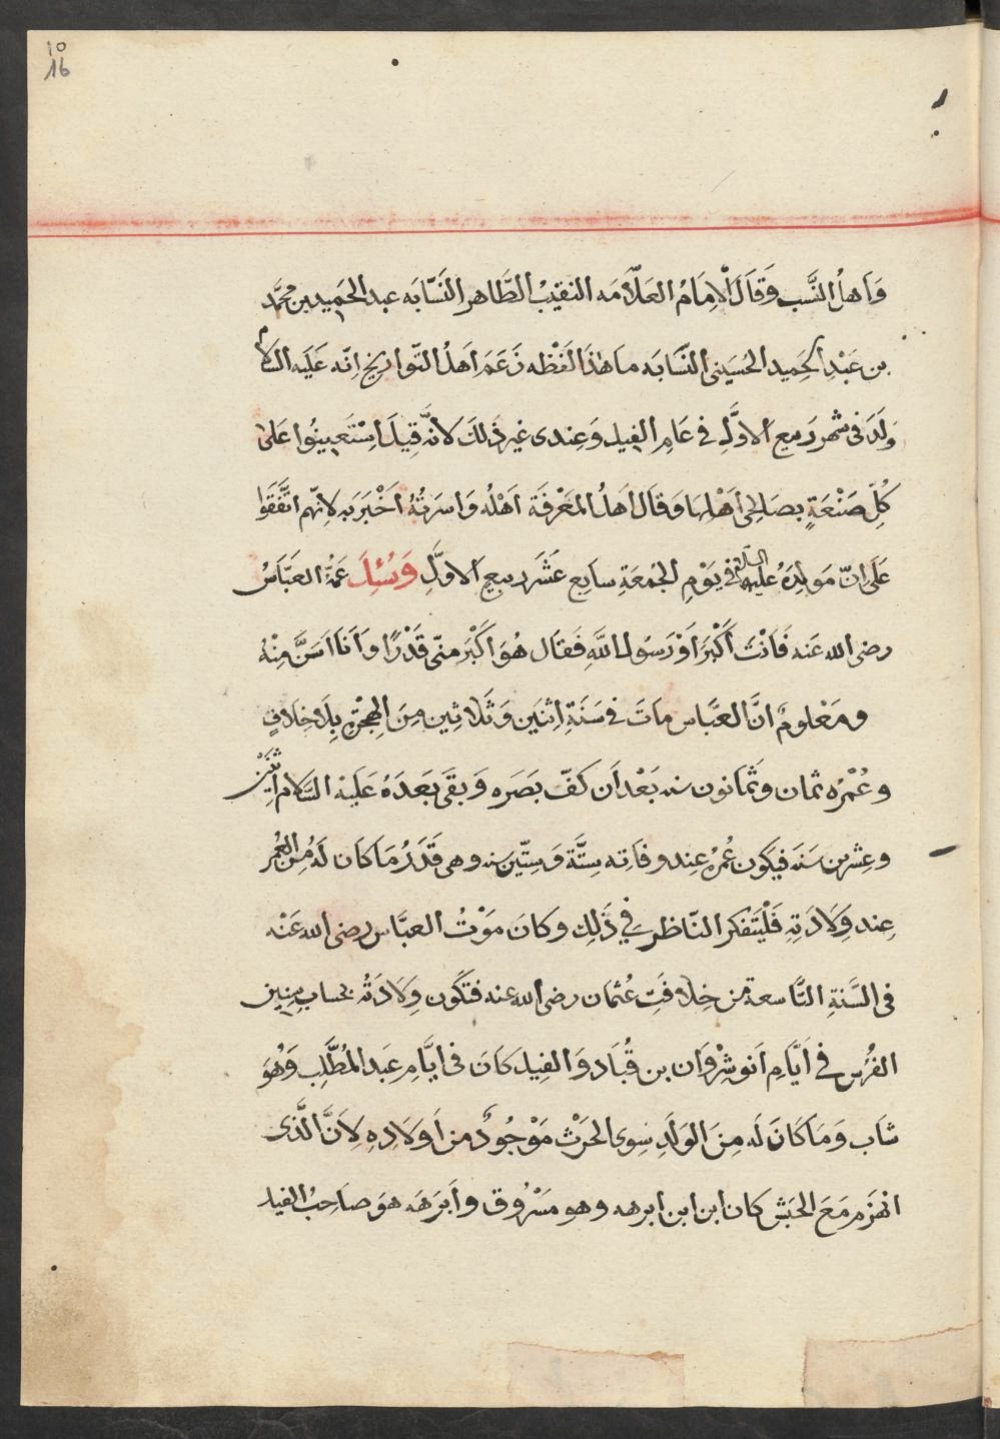 ١٥
16
وَاَهلُ النَّسب وَقَالَ الْاِمَامُ العَلَّامَه النقيبُ الطَّاهر النَسَّابَه عبد الحَميد بن محمَّد
بن عَبْدِ الحَميد الحُسَينى النسَّابَه ما هٰذا لَفظه زَعَمَ اَهلُ التّواريخ اِنّه عَلَيه السَلام
وَلَدَ فى شهر رَبيع الاوَّلِ فى عَامِ الفِيلِ وَعِندى غير ذٰلكَ لانَّه قِيلَ اِسْتَعِينُوا عَلىٰ
كُلِّ صَنْعَةٍ بصَالِحى اَهْلِهَا وَقَال اَهلُ المَعْرفَة اَهْلُه وَاسرَتُهُ اَخْبَرَ بِه لاِنّهم اتَّفَقُوا
عَلىٰ انّ مَولِدَهُ عليه السلام فى يَوْمِ الجُمعَةِ سابع عَشَر ربيع الاوَّلِ وَسُئِلَ عَمُّهُ العبَّاسُ
رضى الله عَنه فَاَنْتَ اَكْبَرُ اَوْ رَسُول اللَّهِ فَقال هُوَ اَكْبَر منّى قَدْرًا وَاَنَا اَسَنُّ مِنْهُ
ومَعْلومٌ انَّ العبَّاس ماتَ فى سَنَةِ اِثنَين وَثَلاثِين مِنَ الهِجْرَةِ بِلَا خِلَافٍ
وعُمْرُه ثمان وثَمانون سنه بَعْد اَن كَفّ بَصَره وَبَقى بَعدَهُ عَلَيْه السَّلام اِثنَيْن
وعِشْرين سَنَه فيَكون عُمرُهُ عِند وفَاتِه سِتَّة وَسِتّين سنه وهى قَدَرُ مَا كَان لَهُ مِنَ العُمر
عِند وِلَادَتِهِ فَلْيَتَفكّر النّاظر فِي ذٰلِك وكانَ مَوْتُ العبَّاس رضى الله عَنْه
فى السَّنَةِ التَّاسعة من خِلافَتِ عُثمَان رضى الله عنه فتَكُون وِلَادَتُه بحسَابِ سِنِين
الفُرْس فى اَيَّامِ اَنوشِرْوَان بن قُبَاد وَالفِيلُ كَانَ فى ايَّام عَبد المُطَّلِب وَهُوَ
شاب وَمَا كَانَ لَه مِنَ الوَلَدِ سِوى الحَرْث مَوْجُودٌ من اَولَادِهِ لِاَنَّ الَّذى
انهَزم مَعَ الحَبَش كان ابن ابن ابرهه وهو مَسْرُوق واَبرَهَه هوَ صَاحِبُ الفيل